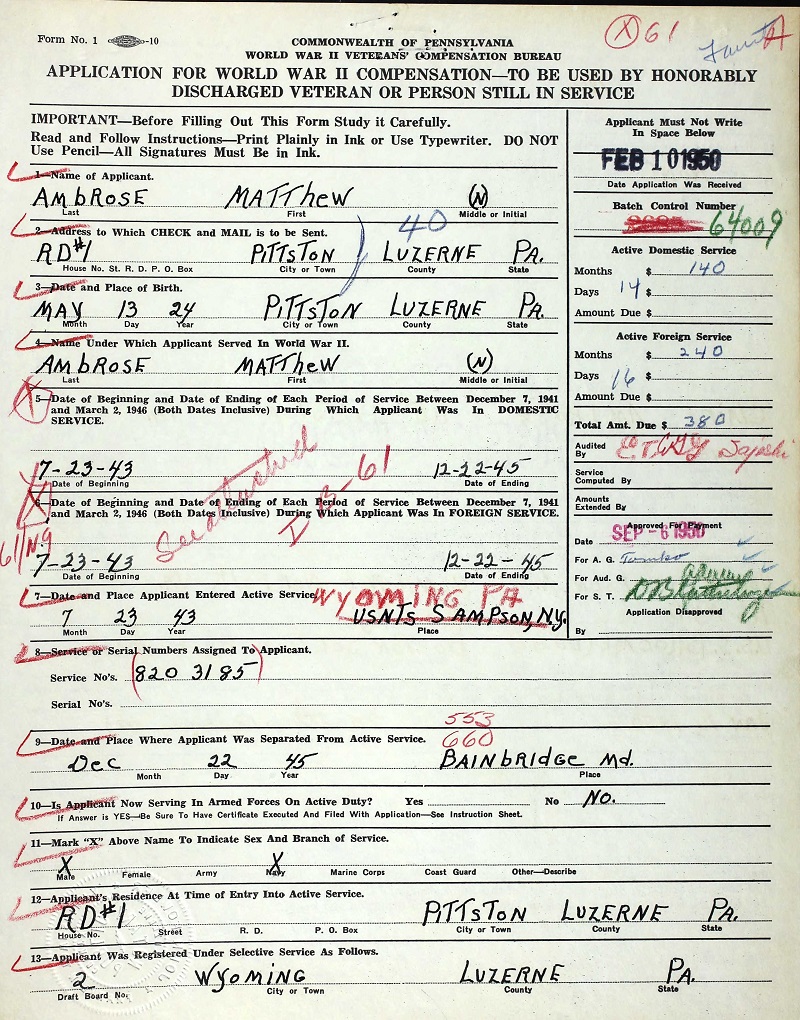 Form No. 1 -10
COMMONWEALTH OF PENNSYLVANIA
WORLD WAR II VETERANS' COMPENSATION BUREAU
X 61
APPLICATION FOR WORLD WAR II COMPENSATION—TO BE USED BY HONORABLY
DISCHARGED VETERAN OR PERSON STILL IN SERVICE
IMPORTANT—Before Filling Out This Form Study it Carefully.
Read and Follow Instructions—Print Plainly in Ink or Use Typewriter. DO NOT
Use Pencil—All Signatures Must Be in Ink.
1—Name of Applicant.
AMBROSE MATTHEW (N)
Last First Middle or Initial
2—Address to Which CHECK and MAIL is to be Sent.
40
RD#1 PITTSTON LUZERNE PA.
House No. St. R. D. P. O. Box City or Town County State
3—Date and Place of Birth.
MAY 13 24 PITTSTON LUZERNE PA.
Month Day Year City or Town County State
4—Name Under Which Applicant Served In World War II.
AMBROSE MATTHEW (N)
Last First Middle or Initial
5—Date of Beginning and Date of Ending of Each Period of Service Between December 7, 1941
and March 2, 1946 (Both Dates Inclusive) During Which Applicant Was In DOMESTIC
SERVICE.
7-23-43 12-22-45
Date of Beginning Date of Ending
See attached
I B-61
6—Date of Beginning and Date of Ending of Each Period of Service Between December 7, 1941
and March 2, 1946 (Both Dates Inclusive) During Which Applicant Was In FOREIGN SERVICE.
61/N.9
7-23-43 12-22-45
Date of Beginning Date of Ending
7—Date and Place Applicant Entered Active Service
WYOMING PA
7 23 43 USNTS SAMPSON, N.Y.
Month Day Year Place
Applicant Must Not Write
In Space Below
FEB 10 1950
Date Application Was Received
Batch Control Number
64009
Active Domestic Service
Months $ 140
Days 14 $
Amount Due $
Active Foreign Service
Months $ 240
Days 16 $
Amount Due $
Total Amt. Due $ 380
Audited
By
Service
Computed By
Amounts
Extended By
Approved For Payment
Date SEP -6 1950
For A. G.
For Aud. G.
For S. T.
Application Disapproved
By
8—Service or Serial Numbers Assigned To Applicant.
Service No's. (820 31 85)
Serial No's.
553
660
9—Date and Place Where Applicant Was Separated From Active Service.
Dec 22 45 BAINBRIDGE Md.
Month Day Year Place
10—Is Applicant Now Serving In Armed Forces On Active Duty? Yes No No.
If Answer is YES—Be Sure To Have Certificate Executed And Filed With Application—See Instruction Sheet.
11—Mark "X" Above Name To Indicate Sex and Branch of Service.
X X
Male Female Army Navy Marine Corps Coast Guard Other—Describe
12—Applicant's Residence At Time of Entry Into Active Service.
RD#1 PITTSTON LUZERNE PA.
House No. Street R. D. P. O. Box City or Town County State
13—Applicant Was Registered Under Selective Service As Follows.
2 WYOMING LUZERNE PA.
Draft Board No. City or Town County State